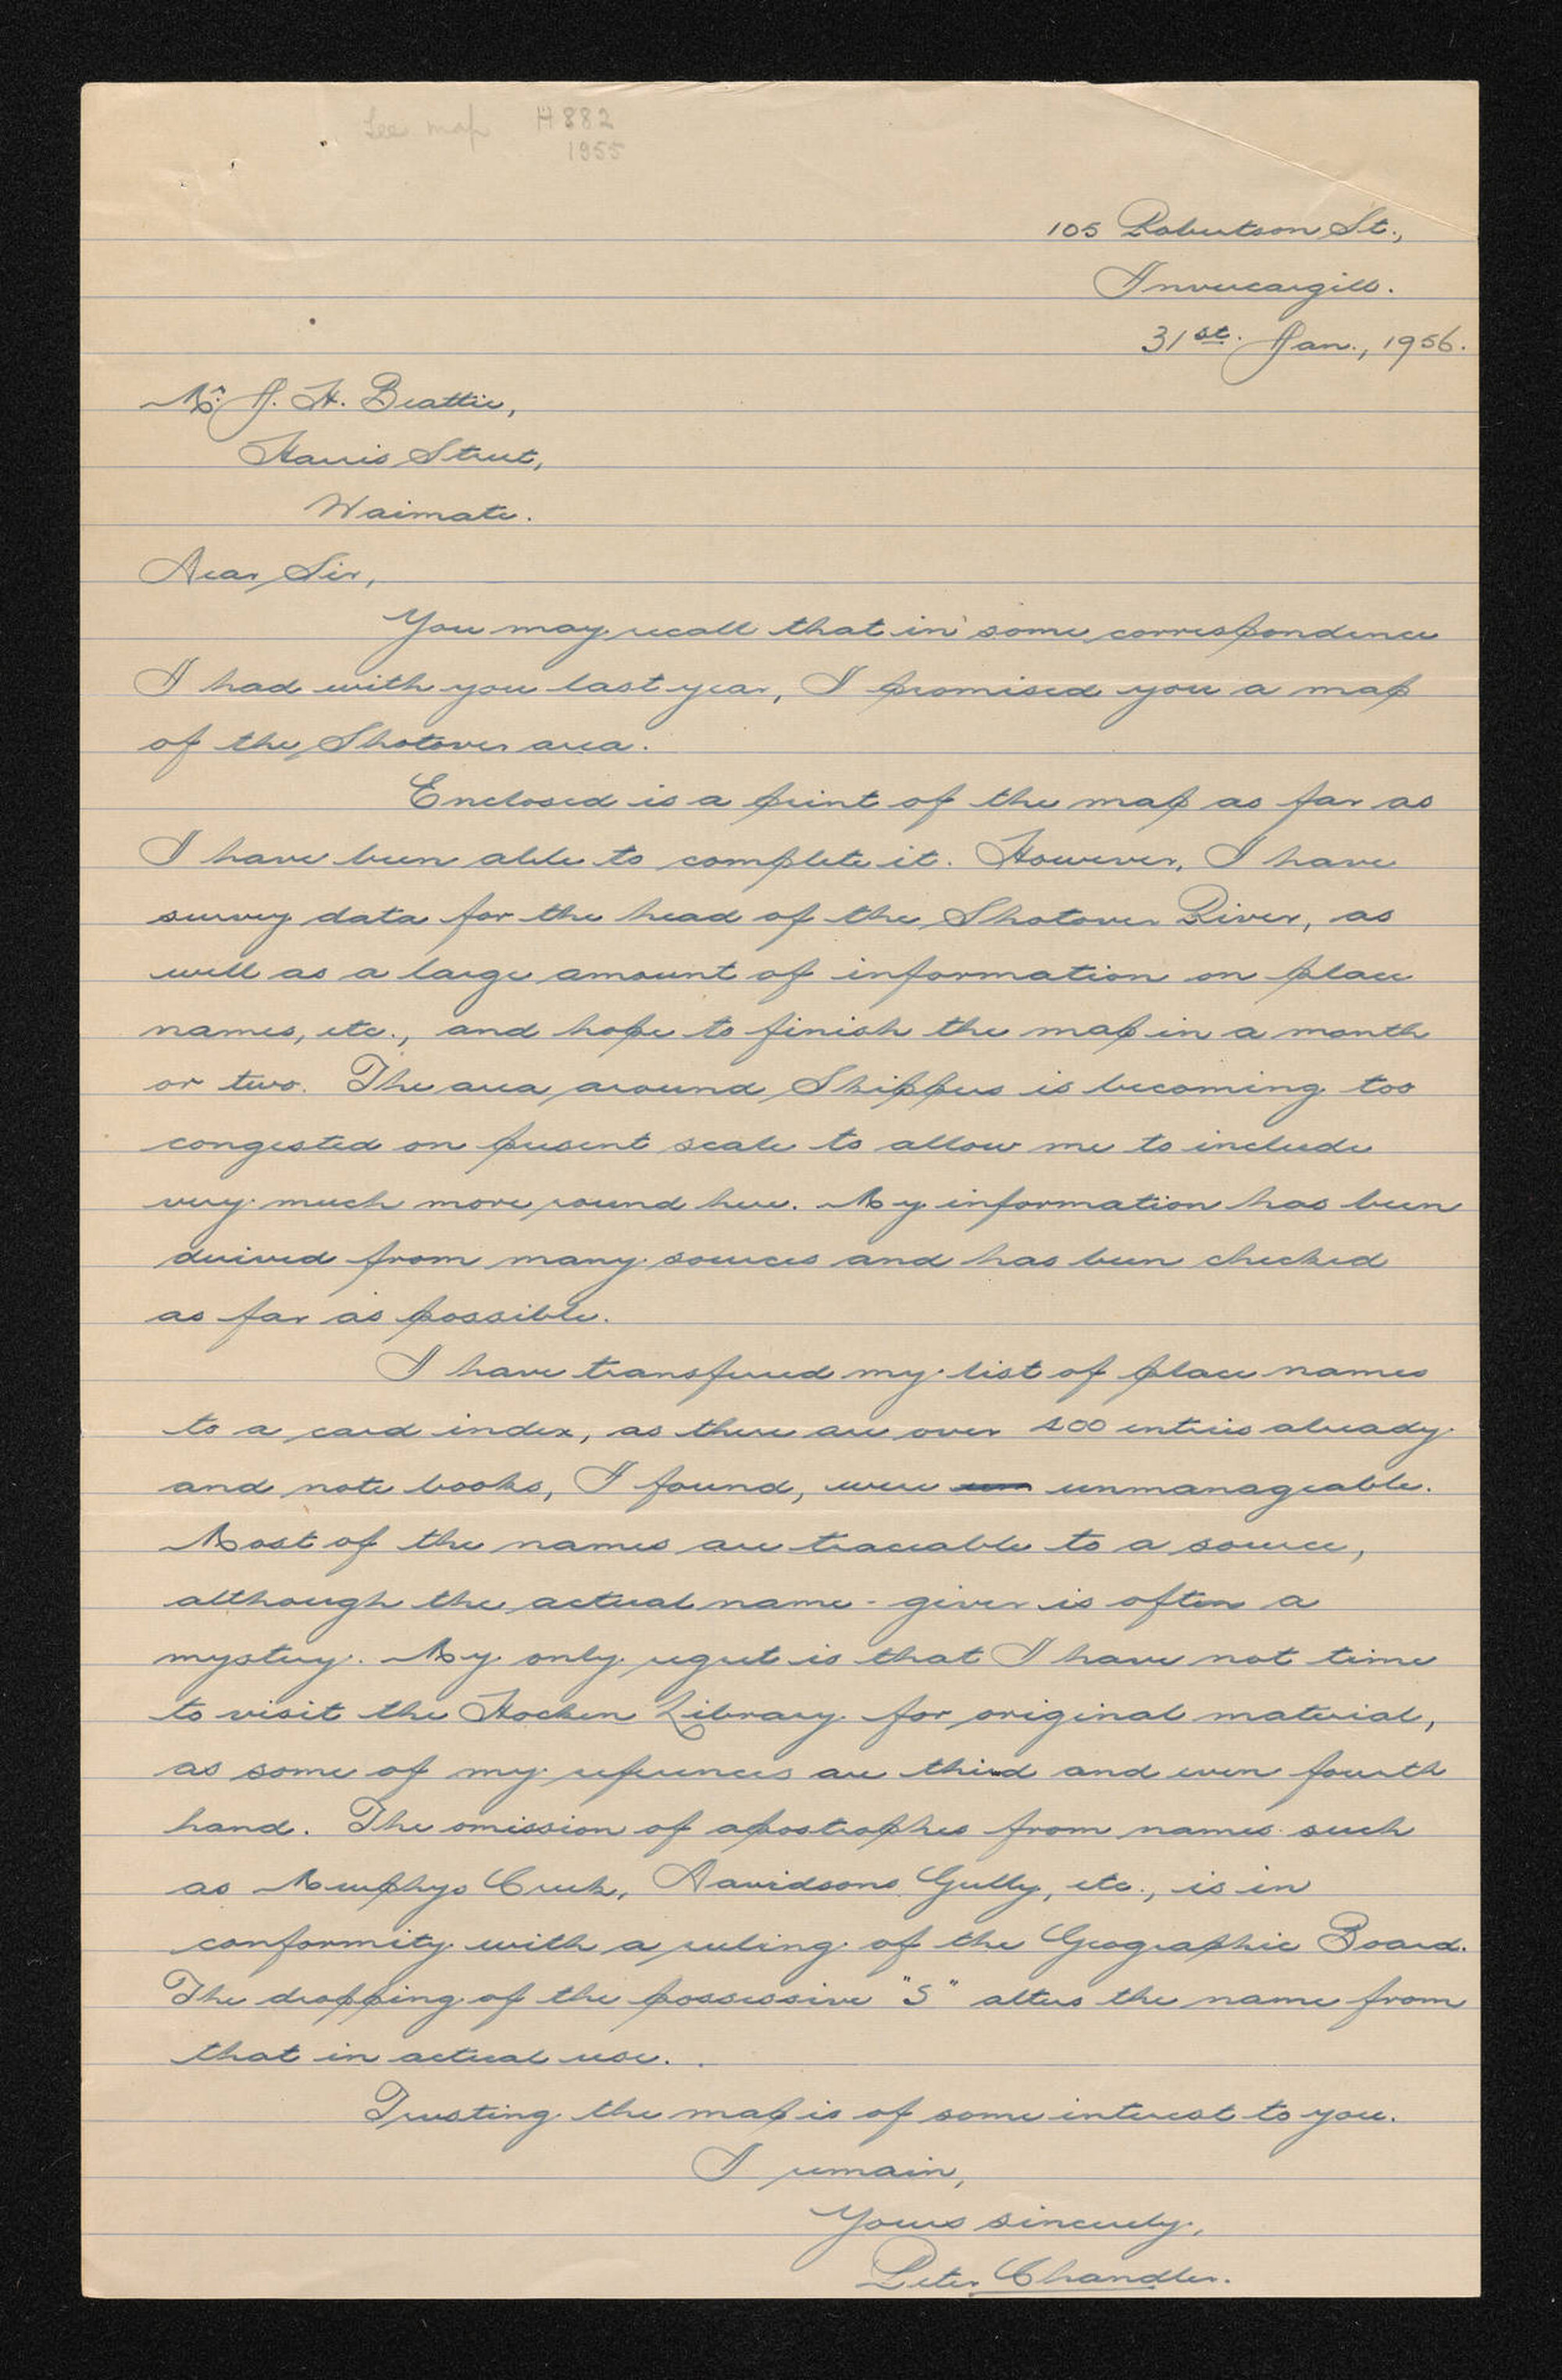 See map H882
1955
105 Robertson St.,
Invercargill.
31st. Jan., 1956.
Mr. J. H. Beattie,
Harris Street,
Waimate.
Dear Sir,
You may recall that in some correspondence
I had with you last year, I promised you a map
of the Shotover area.
Enclosed is a print of the map as far as
I have been able to complete it. However, I have
survey data for the head of the Shotover River, as
well as a large amount of information on place
names, etc., and hope to finish the map in a month
or two. The area around Skippers is becoming too
congested on present scale to allow me to include
very much more round here. My information has been
derived from many sources and has been checked
as far as possible.
I have transferred my list of place names
to a card index, as there are over 400 entries already
and note books, I found, were unmanageable.
Most of the names are traceable to a source,
although the actual name-giver is often a
mystery. My only regret is that I have not time
to visit the Hocken Library for original material,
as some of my references are third and even fourth
hand. The omission of apostrophes from names such
as Murphys Creek, Davidsons Gully, etc., is in
conformity with a ruling of the Geographic Board.
The dropping of the possessive "S" alters the name from
that in actual use.
Trusting the map is of some interest to you.
I remain,
Yours sincerely,
Peter Chandler.